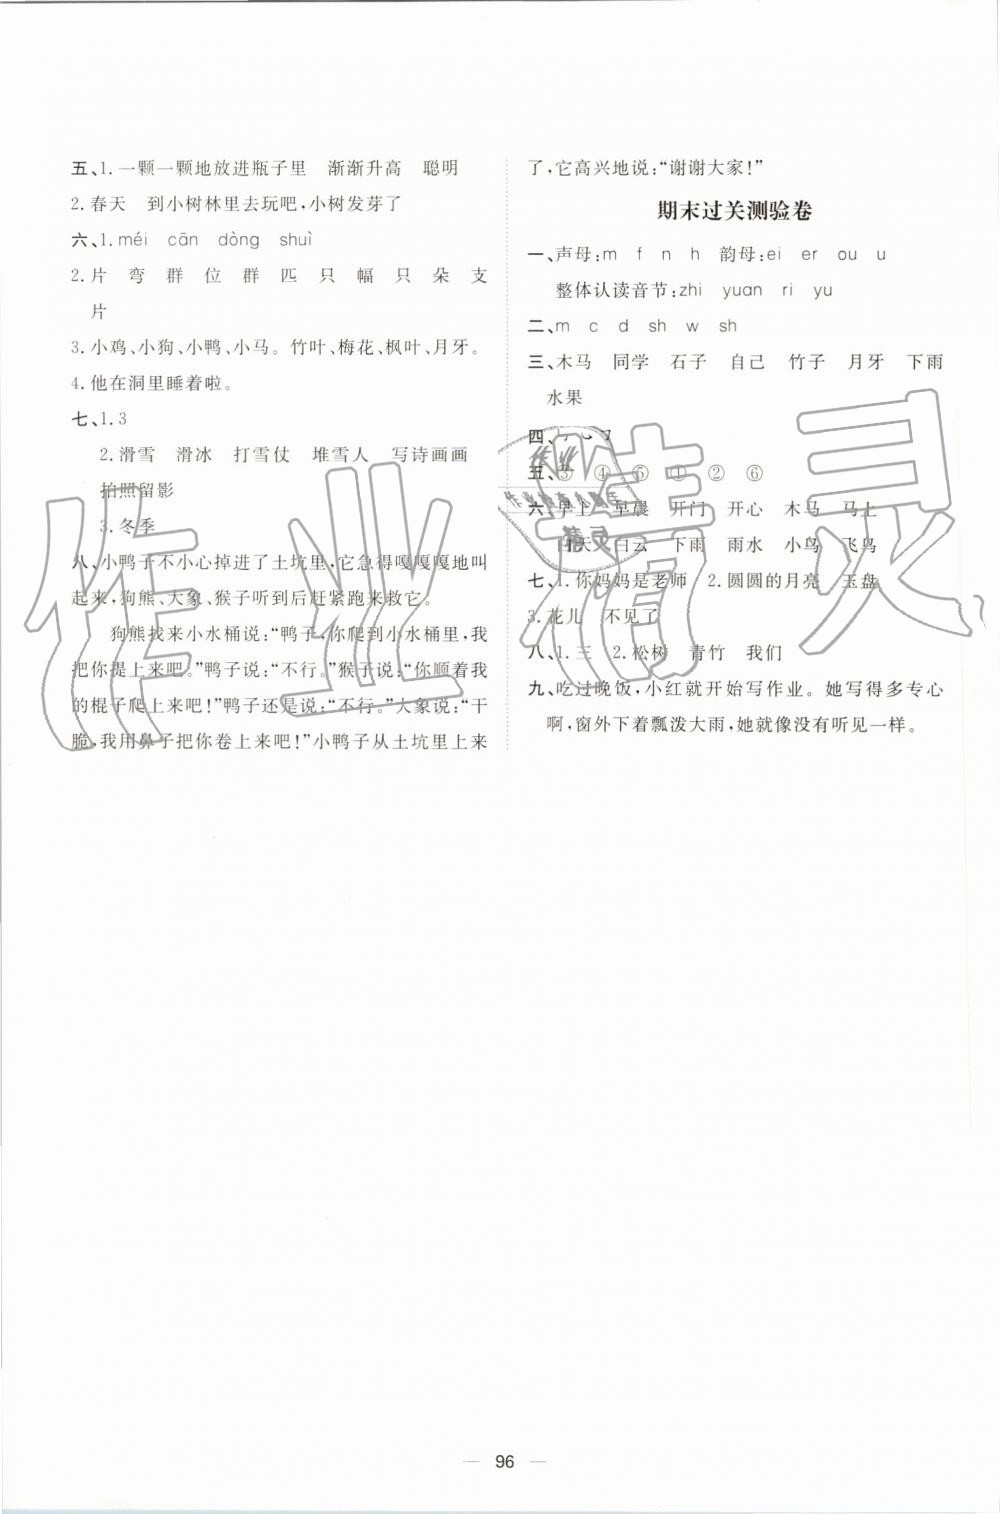 五、1.一颗一颗地放进瓶子里　渐渐升高　聪明
2.春天　到小树林里去玩吧,小树发芽了
六、1.méi　cān　dòng　shuì
2.片　弯　群　位　群　匹　只　幅　只　朵　支
片
3.小鸡、小狗、小鸭、小马。竹叶、梅花、枫叶、月牙。
4.他在洞里睡着啦。
七、1.3
2.滑雪　滑冰　打雪仗　堆雪人　写诗画画
拍照留影
3.冬季
八、小鸭子不小心掉进了土坑里,它急得嘎嘎嘎地叫
起来,狗熊、大象、猴子听到后赶紧跑来救它。
狗熊找来小水桶说:“鸭子,你爬到小水桶里,我
把你提上来吧。”鸭子说:“不行。”猴子说:“你顺着我
的棍子爬上来吧!”鸭子还是说:“不行。”大象说:“干
脆,我用鼻子把你卷上来吧!”小鸭子从土坑里上来
了,它高兴地说:“谢谢大家!”
期末过关测验卷
一、声母:m　f　n　h　韵母:ei　er　ou　u
整体认读音节:zhi　yuan　ri　yu
二、m　c　d　sh　w　sh
三、木马　同学　石子　自己　竹子　月牙　下雨
水果
四、
五、③　④　⑤　①　②　⑥
六、早上　早晨　开门　开心　木马　马上
白天　白云　下雨　雨水　小鸟　飞鸟
七、1.你妈妈是老师　2.圆圆的月亮　玉盘
3.花儿　不见了
八、1.三　2.松树　青竹　我们
九、吃过晚饭,小红就开始写作业。她写得多专心
啊,窗外下着瓢泼大雨,她就像没有听见一样。
作业精灵
作业
精灵
96